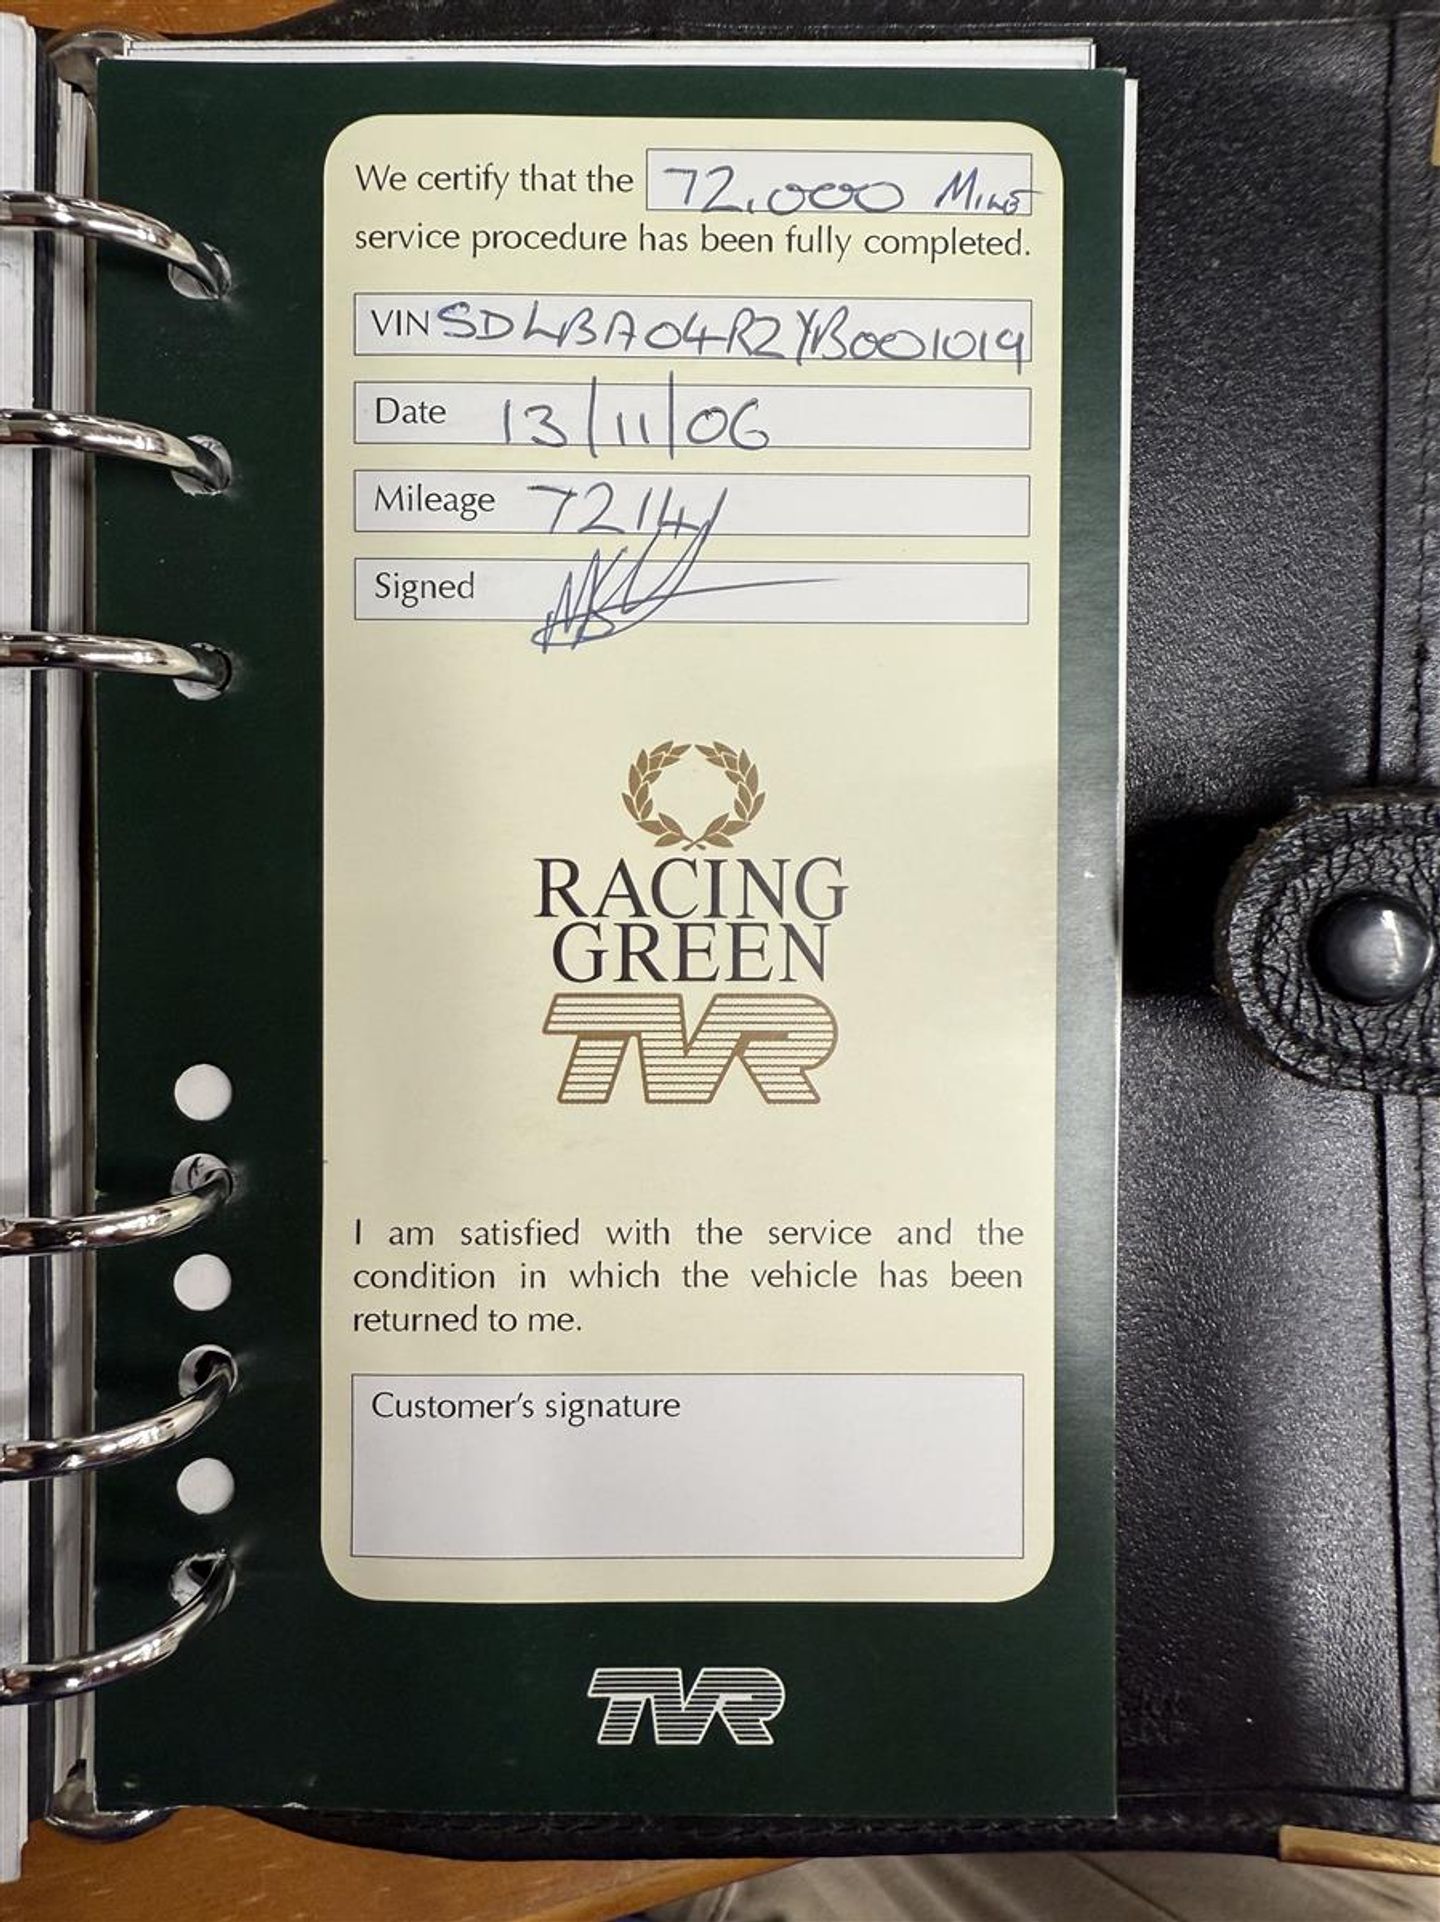 We certify that the 72,000 MILE
service procedure has been fully completed.
VIN SDLBA04R2YB001019
Date 13/11/06
Mileage 7214
Signed
RACING
GREEN
TVR
I am satisfied with the service and the
condition in which the vehicle has been
returned to me.
Customer's signature
TVR